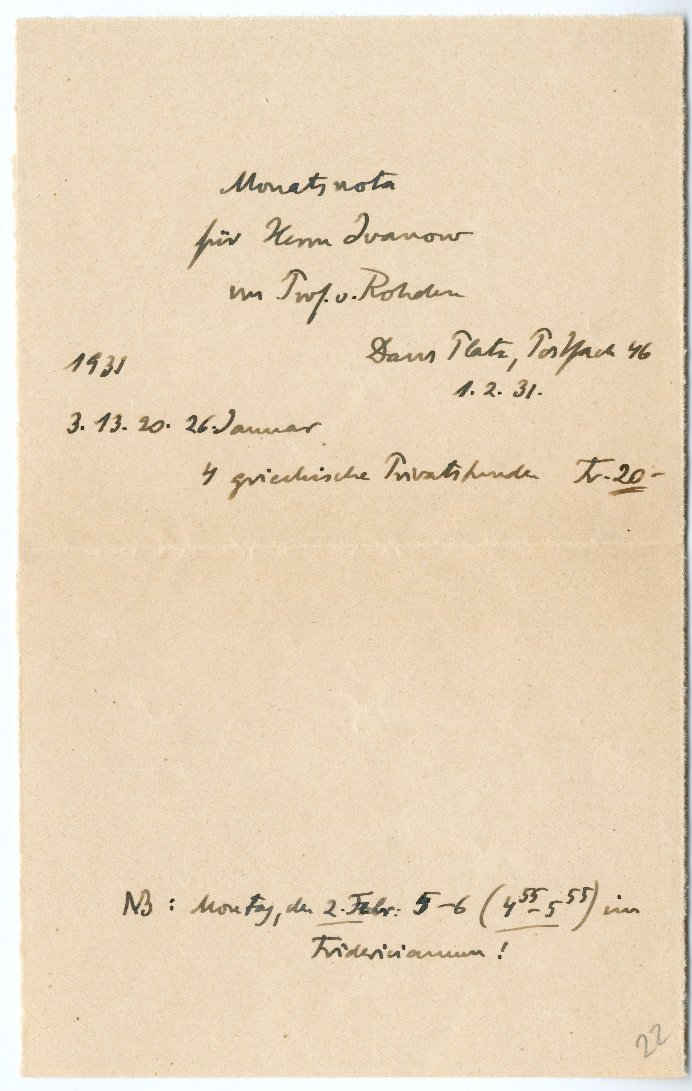 Monatsnota
für Herrn Ivanow
von Prof. v. Rohden
Davos Platz, Postfach 46
1931
1. 2. 31.
3. 13. 20. 26. Januar
4 griechische Privatstunden Fr. 20.-
NB: Montag, den 2. Febr. 5-6 (4 55 - 5 55) im
Fridericianum!
22